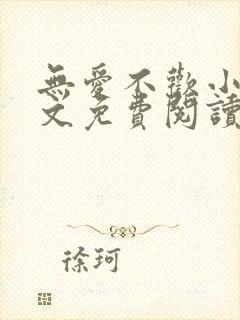 無愛不歡小
文免費閱讀
徐珂